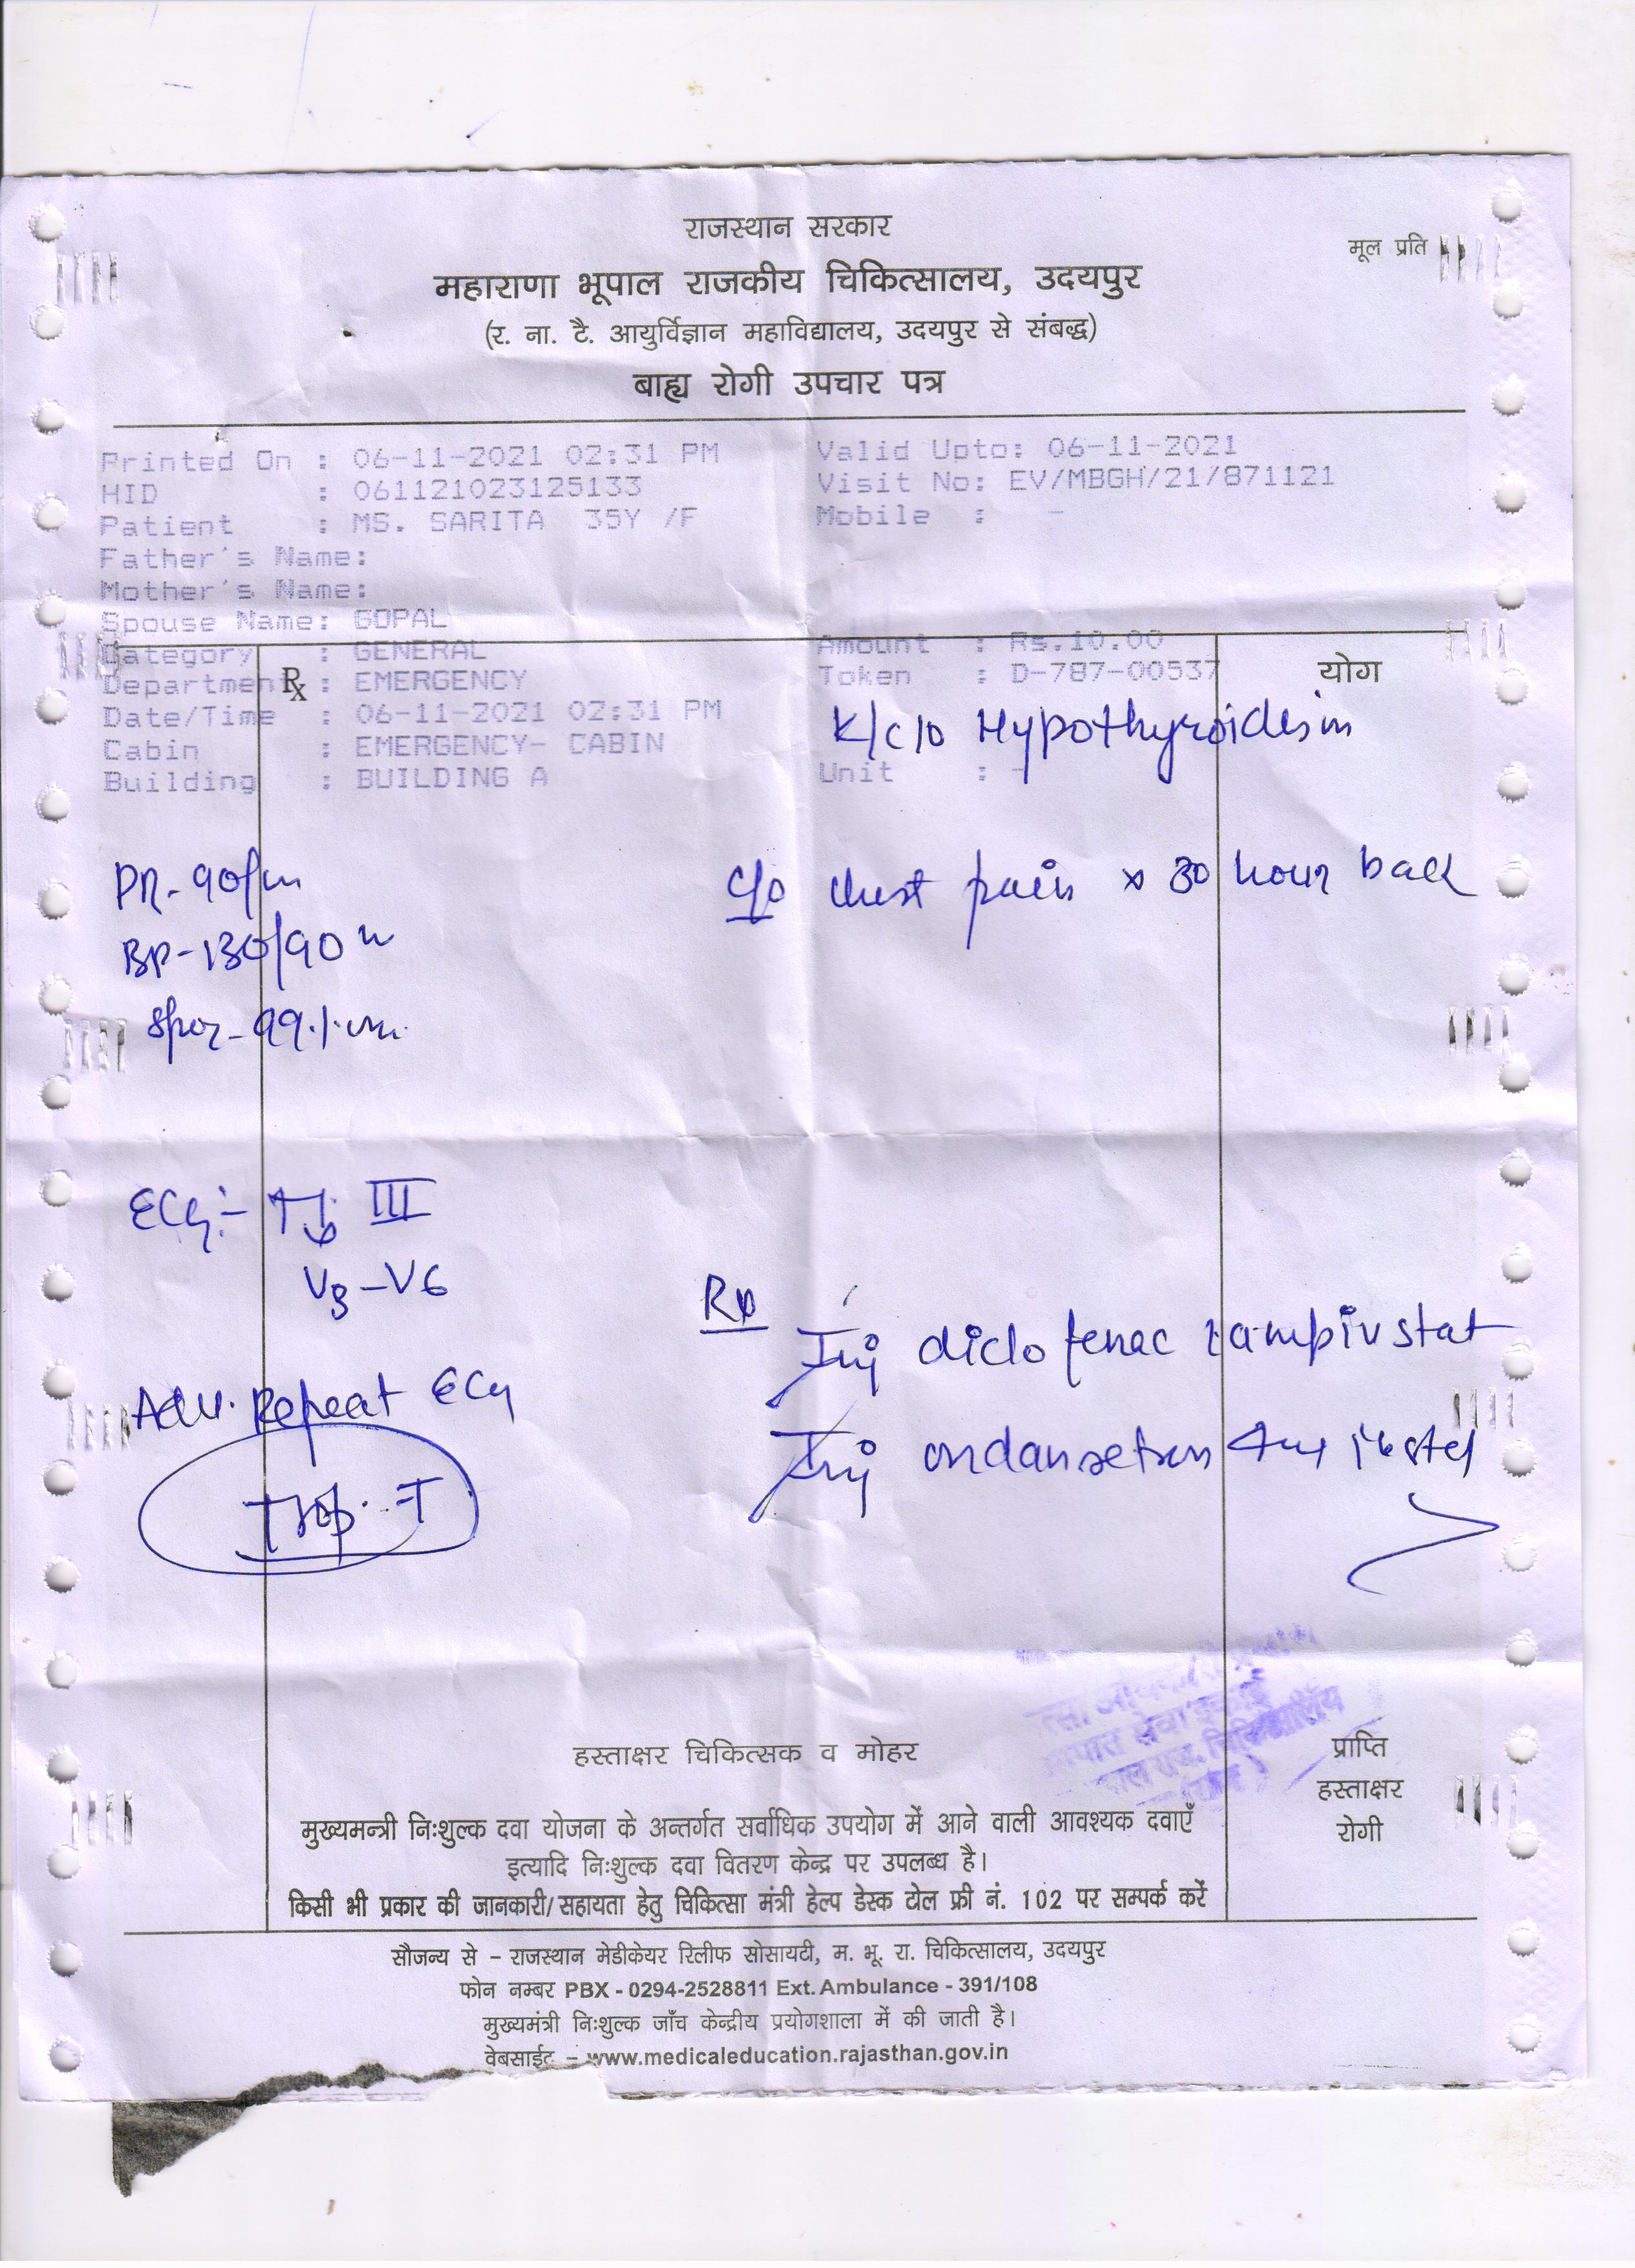 राजस्थान सरकार
मूल प्रति
महाराणा भूपाल राजकीय चिकित्सालय, उदयपुर
(र. ना. टै. आयुर्विज्ञान महाविद्यालय, उदयपुर से संबद्ध)
बाह्य रोगी उपचार पत्र
Printed On : 06-11-2021 02:31 PM Valid Upto: 06-11-2021
HID : 061121023125133 Visit No: EV/MBGH/21/871121
Patient : MS. SARITA 35Y /F Mobile : -
Father's Name:
Mother's Name:
Spouse Name: GOPAL
Category : GENERAL Amount : Rs.10.00
Department : EMERGENCY Token : D-787-00537
℞ योग
Date/Time : 06-11-2021 02:31 PM
K/c/o Hypothyroidesim
Cabin : EMERGENCY- CABIN
Building : BUILDING A Unit : -
PR- 90/m
c/o chest pain x 30 hour back
BP-130/90
Spo2- 99%
ECG:- III
V3-V6
Rx
Inj diclofenac 1 amp iv stat
Adv. Repeat ECG
Inj ondansetron
Trop-T
चिकित्सालय
हस्ताक्षर चिकित्सक व मोहर
प्राप्ति
हस्ताक्षर
रोगी
मुख्यमन्त्री निःशुल्क दवा योजना के अन्तर्गत सर्वाधिक उपयोग में आने वाली आवश्यक दवाएँ
इत्यादि निःशुल्क दवा वितरण केन्द्र पर उपलब्ध है।
किसी भी प्रकार की जानकारी/सहायता हेतु चिकित्सा मंत्री हेल्प डेस्क टोल फ्री नं. 102 पर सम्पर्क करें
सौजन्य से – राजस्थान मेडीकेयर रिलीफ सोसायटी, म. भू. रा. चिकित्सालय, उदयपुर
फोन नम्बर PBX - 0294-2528811 Ext. Ambulance - 391/108
मुख्यमंत्री निःशुल्क जाँच केन्द्रीय प्रयोगशाला में की जाती है।
वेबसाईट – www.medicaleducation.rajasthan.gov.in